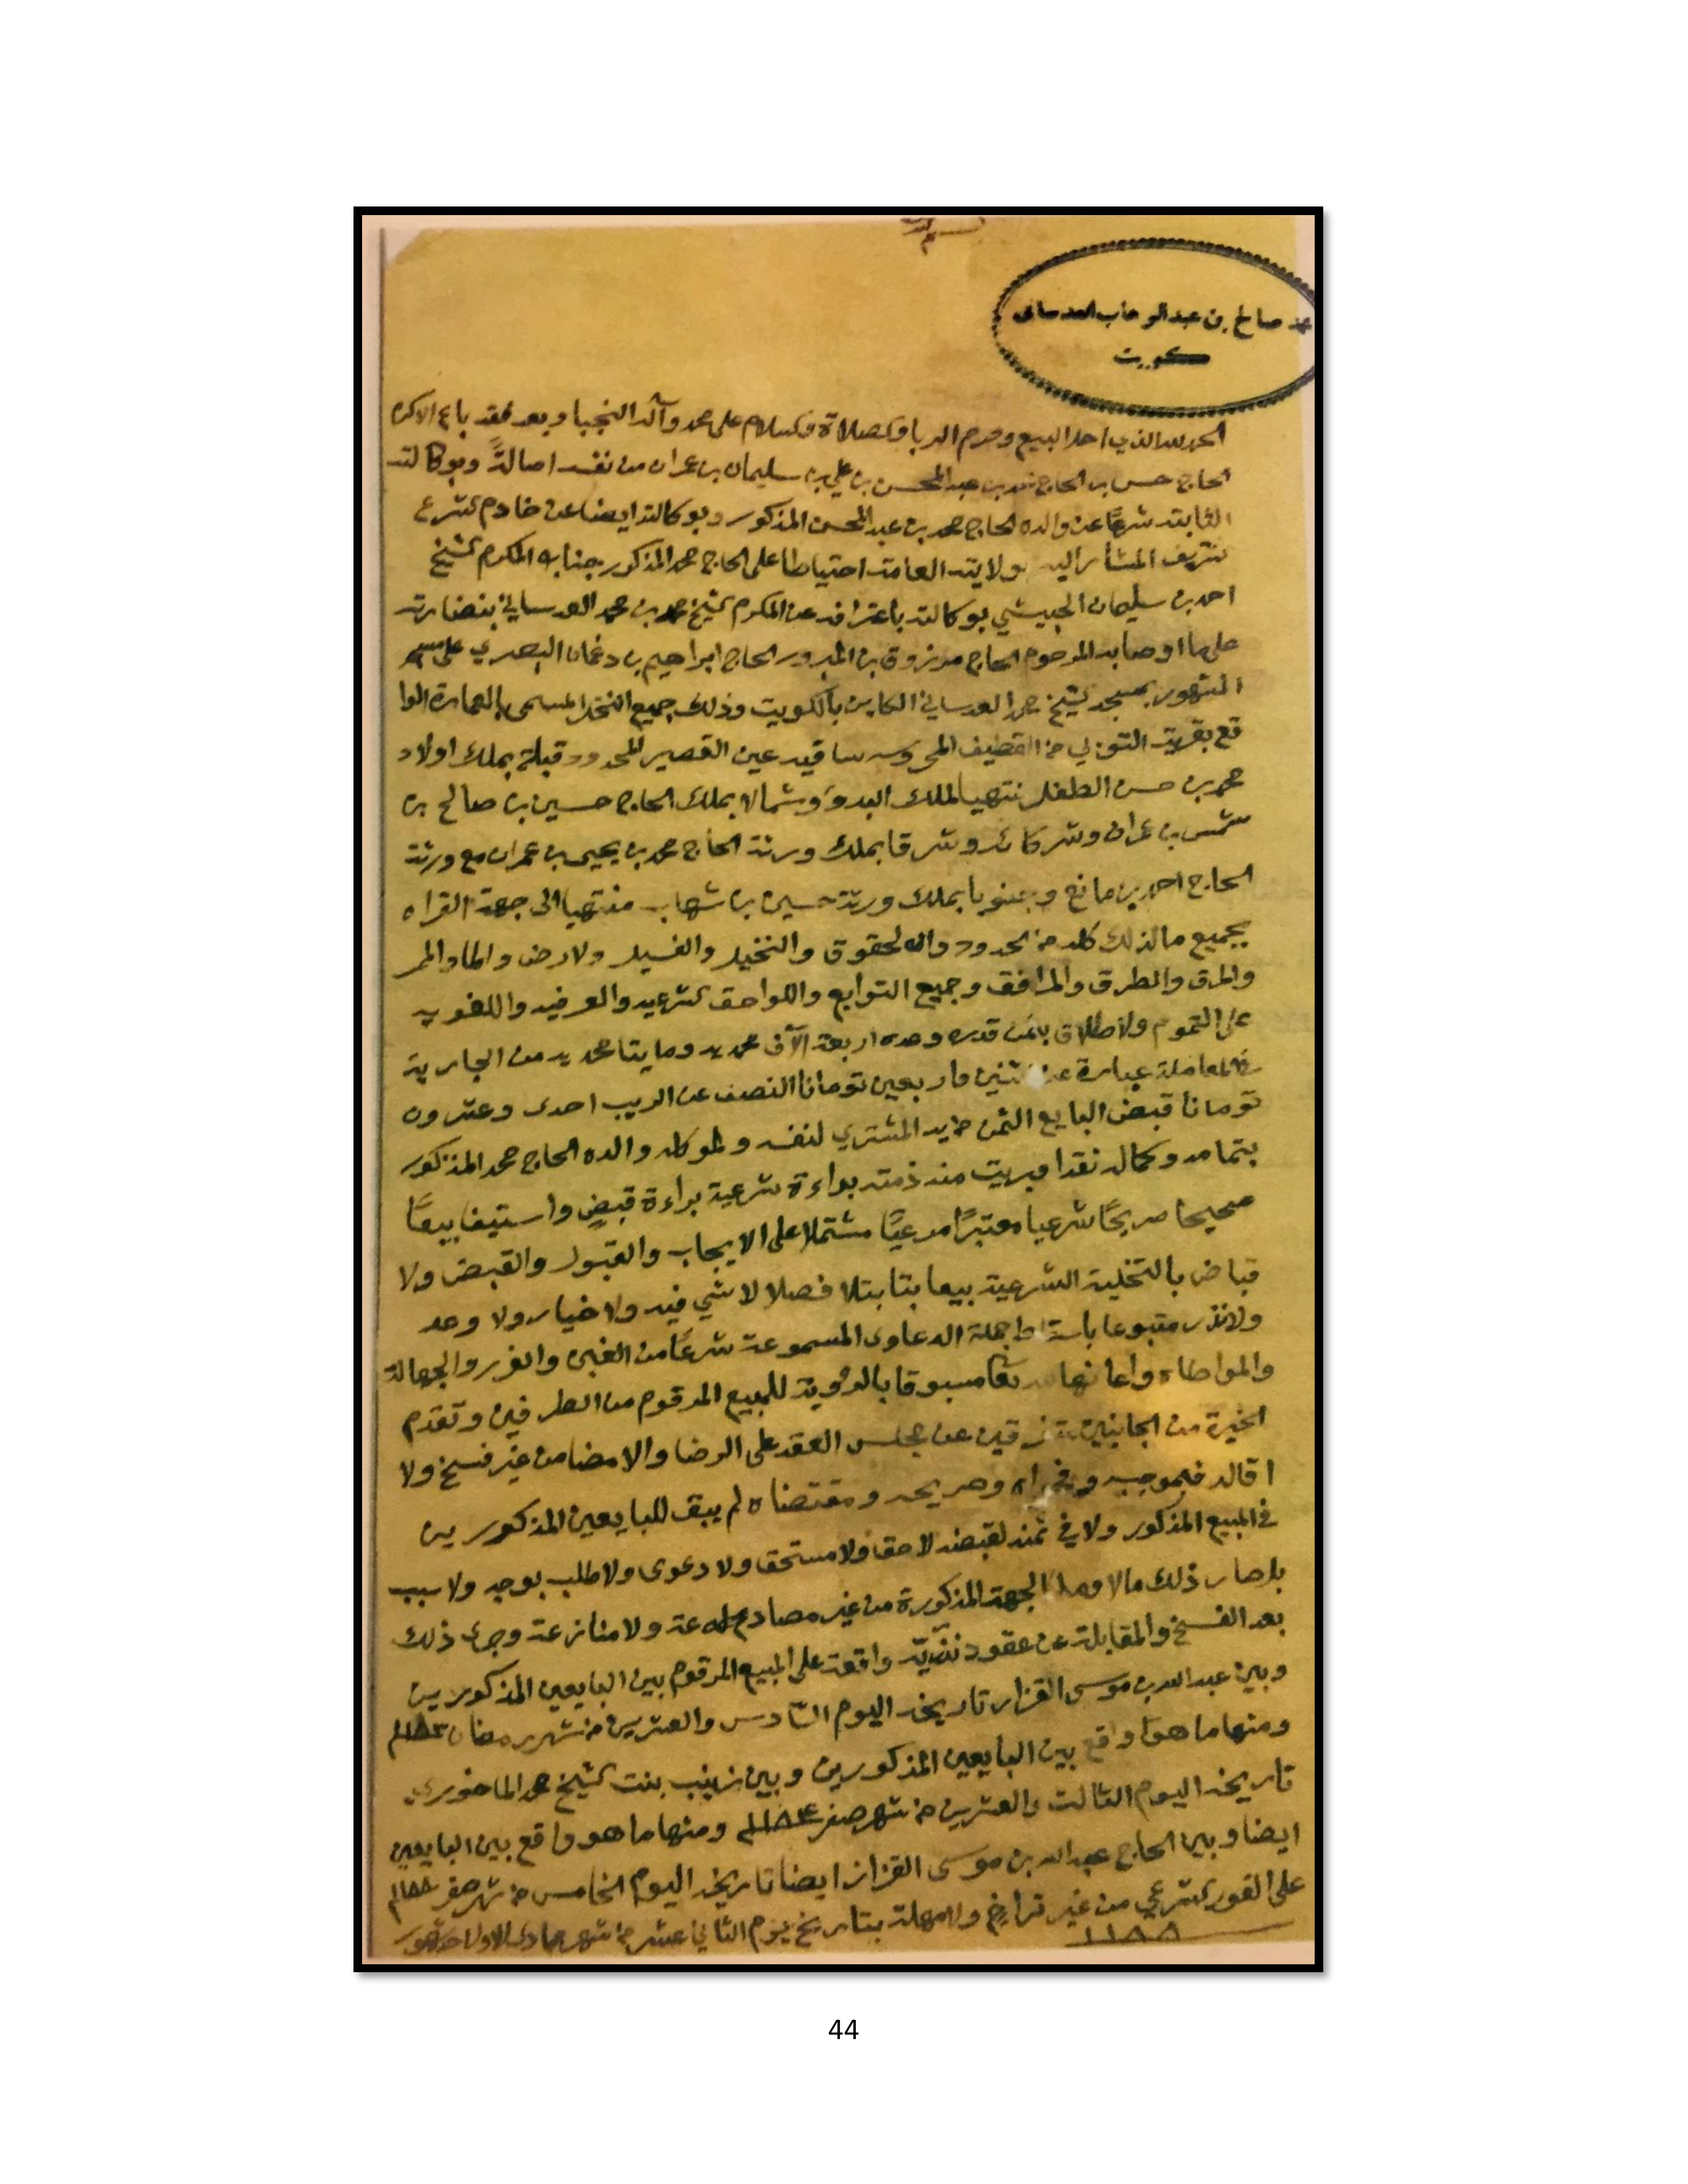 محمد صالح بن عبدالوهاب العدساني
كويت
الحمد لله الذي احل البيع وحرم الربا والصلاة والسلام على محمد وآله النجبا وبعد فقد باع الاكرم
الحاج حسن بن الحاج محمد بن عبد المحسن بن علي بن سليمان بن عمران من نفسه اصالةً وبوكالته
الثابته شرعًا عن والده الحاج محمد بن عبد المحسن المذكور وبوكالته ايضا عن خادم الشرع
الشريف المشار اليه بولايته العامة احتياطا على الحاج محمد المذكور جنابه المكرم الشيخ
احمد بن سليمان الجبيشي بوكالته باعترافه عن المكرم الشيخ محمد بن محمد العدساني بنضارته
على ما اوصا به المرحوم الحاج مرزوق بن المبرور الحاج ابراهيم بن دغمان البصري على
المشهور بمسجد الشيخ محمد العدساني الكاين بالكويت وذلك جميع النخل المسمى بالعمارة الوا
قع بقرية التوبي من القطيف المحروسه ساقيه عين القصير المحدود قبلة بملك اولاد
محمد بن حسن الطفل منتهيا لملك البدو وشمالا بملك الحاج حسين بن صالح بن
شمس بن عمران وشركائه وشرقا بملك ورثة الحاج محمد بن يحيى بن عمران مع ورثة
الحاج احمد بن مانع وجنوبا بملك ورثة حسين بن شهاب منتهيا الى جهة القراه
بجميع ما لذلك كله من الحدود والحقوق والنخيل والفسيل ولارض والماء والممر
والمرق والطرق والمرافق وجميع التوابع واللواحق الشرعيه والعرفيه واللغويه
على العموم ولاطلاق بثمن قدره وعده اربعة آلاف محمديه ومايتا محمديه من الجارية
في المعاملة عبارة عن اثنين واربعين تومانا النصف عن الريب احدى وعشرون
تومانا قبض البايع الثمن من يد المشتري لنفسه ولموكله والده الحاج محمد المذكور
بتمامه وكماله نقدا وبريت منه ذمته براءة شرعية براءة قبضٍ واستيفا بيعًا
صحيحا صريحًا شرعيا معتبرًا مرعيًا مشتملا على الايجاب والقبول والقبض ولا
قباض بالتخلية الشرعية بيعا بتا بتلا فصلا لا شي فيه ولا خيار ولا وعد
ولا نذر متبوعا باسقاط جملة الدعاوى المسموعة شرعًا من الغبن والغرر والجهالة
والمواطاه مسبوقا بالرؤية للمبيع المرقوم من الطرفين وتقدم
الخيرة من الجانبين متفرقين عن مجلس العقد على الرضا والامضا من غير فسخ ولا
اقاله فبموجبه وصريحه ومقتضاه لم يبق للبايعين المذكورين
في المبيع المذكور ولا في ثمنه لقبضه لا حقا ولا مستحقا ولا دعوى ولا طلب بوجه ولا سبب
بل صار ذلك مالا الجهة المذكورة من غير ولا منازعة وجرى ذلك
بعد الفسخ والمقابلة عن عقود واقعة على المبيع المرقوم بين البايعين المذكورين
وبين عبد الله بن موسى القزاز تاريخه اليوم السّادس والعشرين من شهر رمضان ١١٨٣
ومنها ما هو واقع بين البايعين المذكورين وبين زينب بنت الشيخ محمد الماحوزي
تاريخه اليوم الثالث والعشرين من شهر صفر ١١٨٤ ومنها ما هو واقع بين البايعين
ايضا وبين الحاج عبد الله بن موسى القزاز ايضا تاريخه اليوم الخامس من شهر صفر ١١٨٨
على الفور الشرعي من غير تراخٍ ولا مهلة بتاريخ يوم الثاني عشر من شهر جمادى الاول احد شهور
١١٨٨
44